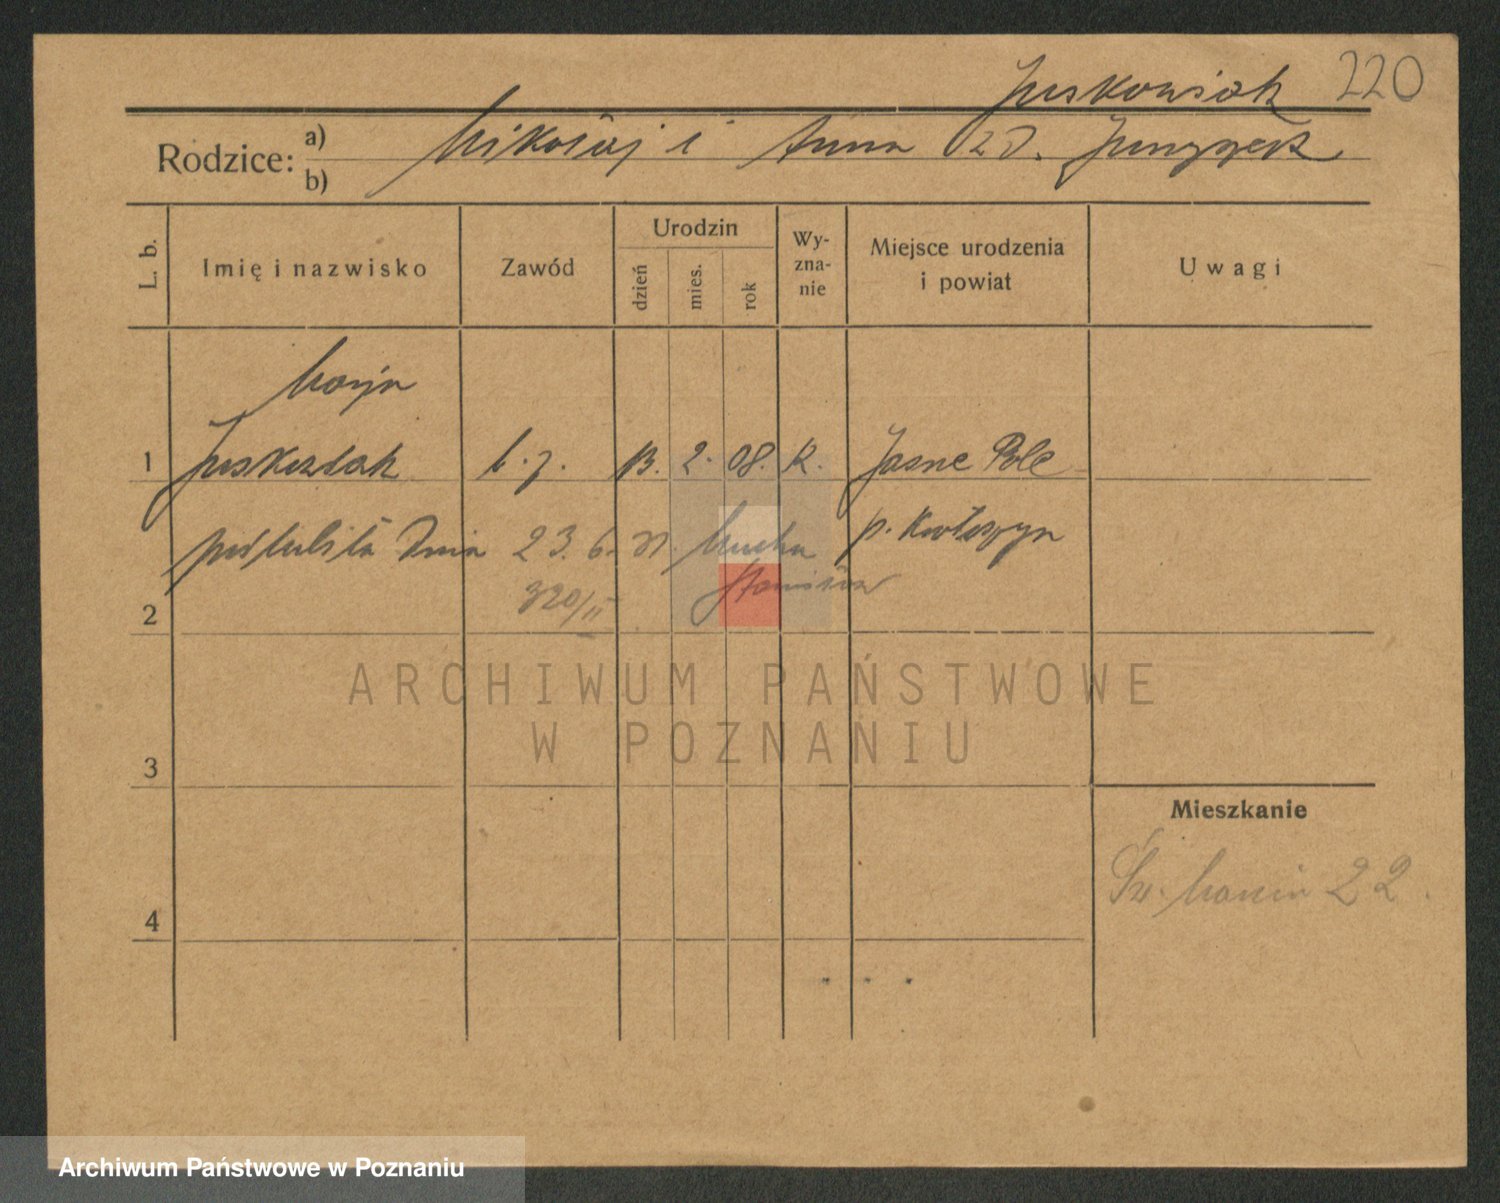 Juskowiak 220
Rodzice: a) Mikołaj i Anna zd.
b)
L. b.
Imię i nazwisko
Zawód
Urodzin
dzień
mies.
rok
Wy-
zna-
nie
Miejsce urodzenia
i powiat
Uwagi
Marja
1 Juskowiak b.z. 13. 2. 08. K. Jasne Pole
poślubiła dnia 23. 6. 31. Mucha p. Krotoszyn
320/II Stanisław
2
ARCHIWUM PAŃSTWOWE
W POZNANIU
3
Mieszkanie
Św. Marcin 22.
4
Archiwum Państwowe w Poznaniu